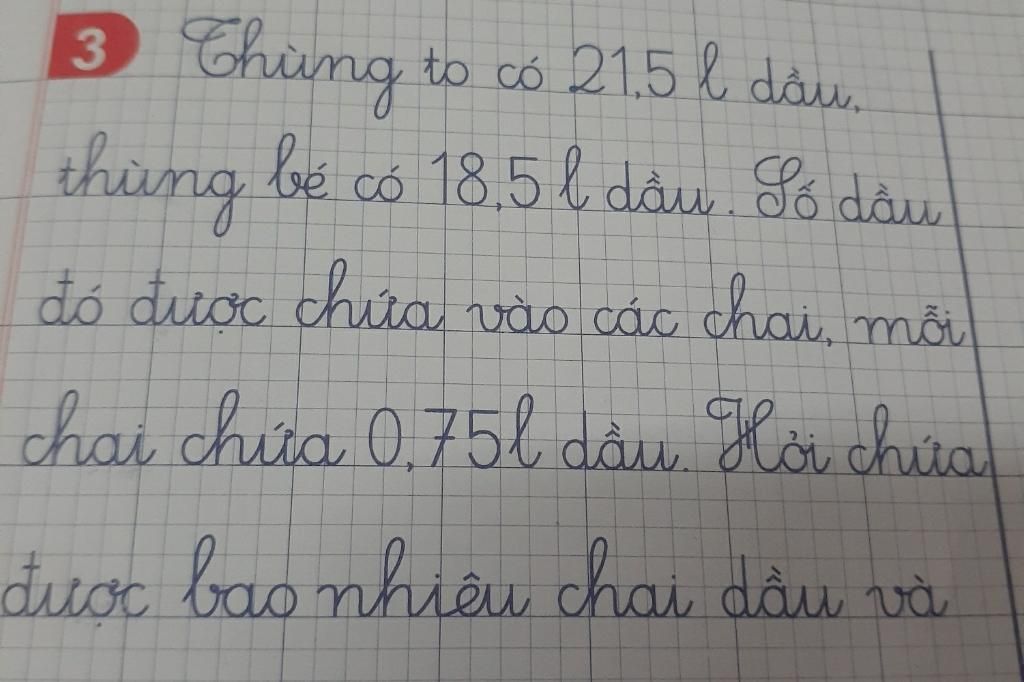 3 Thùng to có 21,5 l dầu,
thùng bé có 18,5 l dầu. Số dầu
đó được chứa vào các chai, mỗi
chai chứa 0,75 l dầu. Hỏi chứa
được bao nhiêu chai dầu và